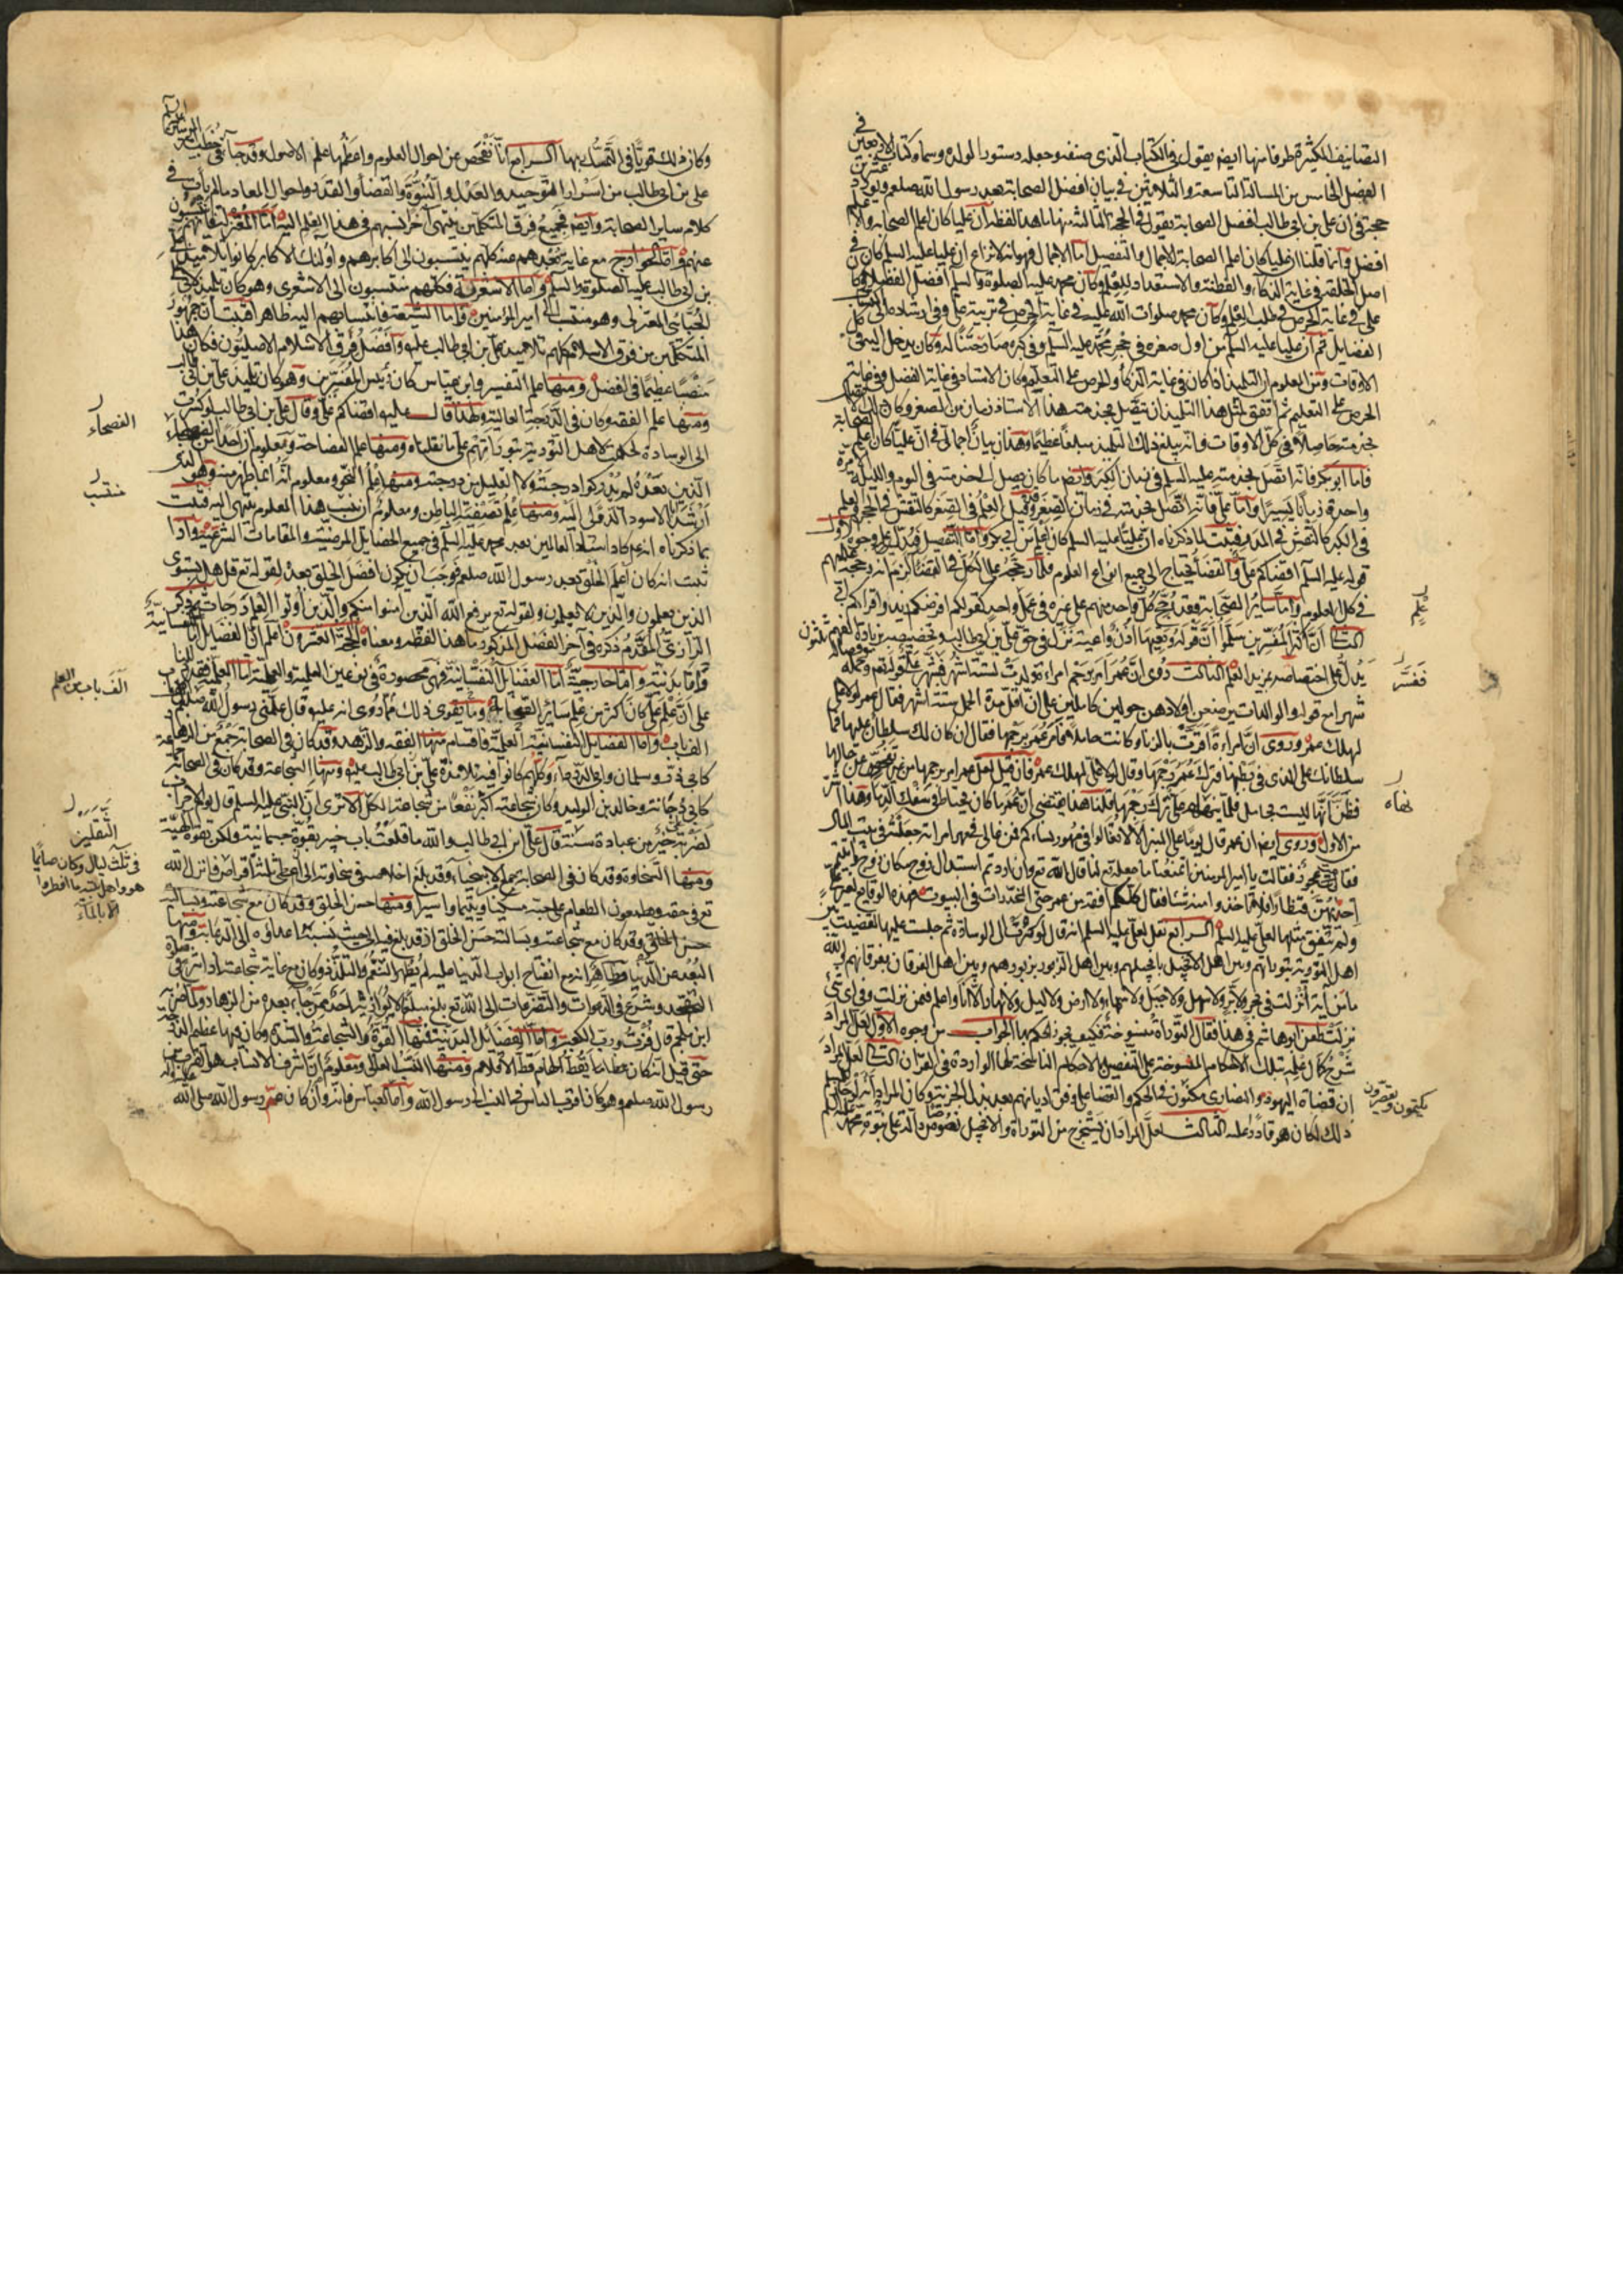 التصانيف الكثيرة طرفا منها ايضا يقول في الكتاب الذي صنفه وجعله دستورا لولده وسماه كتاب الاربعين في
الفصل الخامس من المسالة التاسعة والثلاثين في بيان افضل الصحابة بعد رسول الله صلعم ويورد عشرين
حجة في ان علي بن ابي طالب افضل الصحابة يقول في الحجة الثالثة منها ما هذا لفظه ان عليا كان اعلم الصحابة والاعلم
افضل وانما قلنا ان عليا كان اعلم الصحابة للاجمال والتفصيل اما الاجمال فهو انه لا نزاع ان عليا عليه السلم كان في
اصل الخلقة في غاية الذكاء والفطنة والاستعداد للعلم وكان محمد عليه الصلوة والسلم افضل الفضلاء وكان
علي في غاية الحرص في طلب العلم وكان محمد صلوات الله عليه في غاية الحرص في تربية علي وفي ارشاده الى اكتساب
الفضايل ثم ان عليا عليه السلم من اول صغره في حجر محمد عليه السلم وفي كبره صار ختنا له وكان يدخل اليه في كل
الاوقات ومن المعلوم ان التلميذ اذا كان في غاية الذكاء والحرص على التعلم وكان الاستاد في غاية الفضل وفي غاية
الحرص على التعليم ثم اتفق لمثل هذا التلميذ ان يتصل بخدمة هذا الاستاذ من زمان الصغر وكان ذلك الاتصال
بخدمته حاصلا في كل الاوقات فانه يبلغ ذلك التلميذ مبلغا عظيما وهذا بيان اجمالي في ان عليا كان اعلم الصحابة
فاما ابو بكر فانه اتصل بخدمته عليه السلم في زمان الكبر وايضا ما كان يصل الى خدمته في اليوم والليلة الا مرة
واحدة زمانا يسيرا واما علي فانه اتصل بخدمته في زمان الصغر وقد قيل العلم في الصغر كالنقش في الحجر والعلم
في الكبر كالنقش في المدر فثبت لما ذكرناه ان عليا عليه السلم كان اعلم من ابي بكر واما التفصيل فيدل عليه وجوه الاول
قوله عليه السلم اقضاكم علي والقضا يحتاج الى جميع انواع العلوم فلما رجحه على الكل في القضا لزم انه رجحه عليهم
في كل العلوم واما ساير الصحابة فقد رجح كل واحد منهم على غيره في علم واحد كقوله افرضكم زيد واقراكم ابي
الثاني ان اكثر المفسرين سلموا ان قوله وتعيها اذن واعية نزل في حق علي بن ابي طالب وتخصيصه بزيادة الفهم
يدل على اختصاصه بمزيد العلم الثالث روى ان عمر امر برجم امراة ولدت لستة اشهر فنبهه علي بقوله تع وحمله وفصاله ثلثون
شهرا مع قوله والوالدات يرضعن اولادهن حولين كاملين على ان اقل مدة الحمل ستة اشهر فقال عمر لولا علي
لهلك عمر وروى ان امراة اقرت بالزنا وكانت حاملا فامر عمر برجمها فقال ان كان لك سلطان عليها فما
سلطانك على الذي في بطنها فترك عمر رجمها وقال لولا علي لهلك عمر فان قيل لعل عمر امر برجمها من غير تفحص عن حالها
فظن انها ليست بحامل فلما نبهه علي ترك رجمها قلنا هذا يقتضي ان عمر ما كان يحتاط في سفك الدما وهذا اشر
من الاول وروى ايضا ان عمر قال يوما على المنبر الا لا تغالوا في مهور نسائكم فمن غالى في مهر امراته جعلته في بيت المال
فقامت عجوز فقالت يا امير المومنين اتمنعنا ما جعله لنا قال الله تع وان اردتم استبدال زوج مكان زوج واتيتم
احديهن قنطارا فلا تاخذوا منه شيئا فقال كلكم افقه من عمر حتى المخدرات في البيوت فهذه الوقايع لغير علي
ولم يتفق مثلها لعلي عليه السلم الرابع نقل لعلي عليه السلم انه قال لو كسرت لي الوسادة ثم جلست عليها لقضيت بين
اهل التورية بتوراتهم وبين اهل الانجيل بانجيلهم وبين اهل الزبور بزبورهم وبين اهل الفرقان بفرقانهم والله
ما من آية انزلت في بحر ولا بر ولا سهل ولا جبل ولا سماء ولا ارض ولا ليل ولا نهار الا انا اعلم فيمن نزلت وفي اي شئ
نزلت طعن ابو هاشم في هذا فقال التوراة منسوخة فكيف يجوز الحكم بها الجواب من وجوه الاول لعل المراد
شرح كمال علمه بتلك الاحكام المنسوخة على التفصيل والاحكام الناسخة لها الواردة في القران الثاني لعل المراد
ان قضاة اليهود والنصارى متمكنون في الحكم والقضا على وفق اديانهم بعد بذل الجزية وكان المراد انه لو جاز
ذلك لكان هو قادرا عليه الثالث لعل المراد ان يستخرج من التوراة والانجيل نصوصا دالة على نبوة محمد عليه السلم
علم
ففسر
نهاه
يكتمون ويقصرون
وكان ذلك قويا في التمسك بها الرابع انا نتفحص عن احوال العلوم واعظمها علم الاصول وقد جاء في خطب امير المومنين
علي بن ابي طالب من اسرار التوحيد والعدل والنبوة والقضا والقدر واحوال المعاد ما لم يات في
كلام ساير الصحابة وايضا فجميع فرق المتكلمين ينتهي آخر نسبهم في هذا العلم اليه اما المعتزلة فانهم ينسبون
عنهم واما الخوارج مع غاية بعدهم عنه كلهم ينتسبون الى اكابرهم واولئك الاكابر كانوا تلاميذ علي
بن ابي طالب عليه الصلوة والسلم واما الاشعرية فكلهم منتسبون الى الاشعري وهو كان تلميذ لابي علي
الجبائي المعتزلي وهو منتسب الى امير المومنين واما الشيعة فانتسابهم اليه ظاهر فثبت ان جمهور
المتكلمين من فرق الاسلام كلهم تلاميذ علي بن ابي طالب عليه وافضل فرق الاسلام الاصليون فكان هذا
منصبا عظيما في الفضل ومنها علم التفسير وابن عباس كان رئيس المفسرين وهو كان تلميذ علي بن ابي طالب
ومنها علم الفقه وكان في الدرجة العالية ولهذا قال عليه اقضاكم علي وقال علي بن ابي طالب لو كسرت
لي الوسادة لحكمت لاهل التورية بتوراتهم على ما نقلناه ومنها علم الفصاحة ومعلوم ان احدا من الفصحاء
الذين بعده لم يدركوا درجته ولا القليل من درجته ومنها علم النحو ومعلوم انه انما ظهر منه وهو الذي
ارشد ابا الاسود الدئلي اليه ومنها علم تصفية الباطن ومعلوم ان نسب هذا العلوم ينتهي اليه فثبت
بما ذكرناه انه عم كان استاذ العالمين بعد محمد عليه السلم في جميع الخصايل المرضية والمقامات الشرعية واذا
ثبت انه كان اعلم الخلق بعد رسول الله صلعم وجب ان يكون افضل الخلق بعده لقوله تع قل هل يستوي
الذين يعلمون والذين لا يعلمون ولقوله تع يرفع الله الذين آمنوا منكم والذين اوتوا العلم درجات
الرازي المقدم ذكره في آخر الفصل المذكور ما هذا لفظه ومعناه الحجة العشرون اعلم ان الفضايل اما نفسانية
واما بدنية واما خارجية اما الفضايل النفسانية فهي محصورة في نوعين العلمية والعملية اما العلمية فقد دللنا
على ان علم علي كان اكثر من علم ساير الصحابة ومما يقوى ذلك ما روى انه عليه قال علمني رسول الله صلعم
الف باب واما الفضايل النفسانية العملية فاقسام منها الفقه والزهد وقد كان في الصحابة جمع من الزهاد
كابي ذر وسلمان وابي الدرداء وكلهم كانوا فيه تلامذة علي بن ابي طالب عليه ومنها الشجاعة وقد كان في الصحابة جماعة
كابي دجانة وخالد بن الوليد وكان شجاعته اكثر نفعا من شجاعة الكل الا ترى ان النبي عليه السلم قال يوم الاحزاب
لضربة علي خير من عبادة سنة قال علي بن ابي طالب والله ما قلعت باب خيبر بقوة جسمانية ولكن بقوة الهية
ومنها السخاوة وقد كان في الصحابة جمع من الاسخياء وقد بلغ اخلاصه في سخاوته الى ان اعطى ثلثة اقراص فانزل الله
تع في حقه ويطعمون الطعام على حبه مسكينا ويتيما واسيرا ومنها حسن الخلق وقد كان مع شجاعته وبسالته
حسن الخلق وقد كان مع شجاعته وبسالته حسن الخلق اذ قد بلغ فيه الى حيث نسبه اعداؤه الى الدعابة ومنها
البعد عن الدنيا وظاهر انه مع انفتاح ابواب الدنيا عليه لم يظهر التنعم والتلذذ وكان مع غاية شجاعته اذا شرع في
التهجد وشرع في الدعوات والتضرعات الى الله تع بلغ مبلغا لا يوازيه احد ممن جاء بعده من الزهاد ولما ضربه
ابن ملجم قال فزت ورب الكعبة واما الفضايل البدنية فمنها القوة والشجاعة والشدة وكان فيها عظيم الدرجة
حتى قيل انه كان يقط الهام قط الاقلام ومنها النسب العالي ومعلوم ان اشرف الانساب هو القرب من
رسول الله صلعم وهو كان اقرب الناس في النسب الى رسول الله واما العباس فانه وان كان عم رسول الله صلى الله عليه وآله
الفصحاء
منتسب
الف باب من العلم
في ثلث ليال وكان صائما
هو واهل بيته ما افطروا
الا بالماء